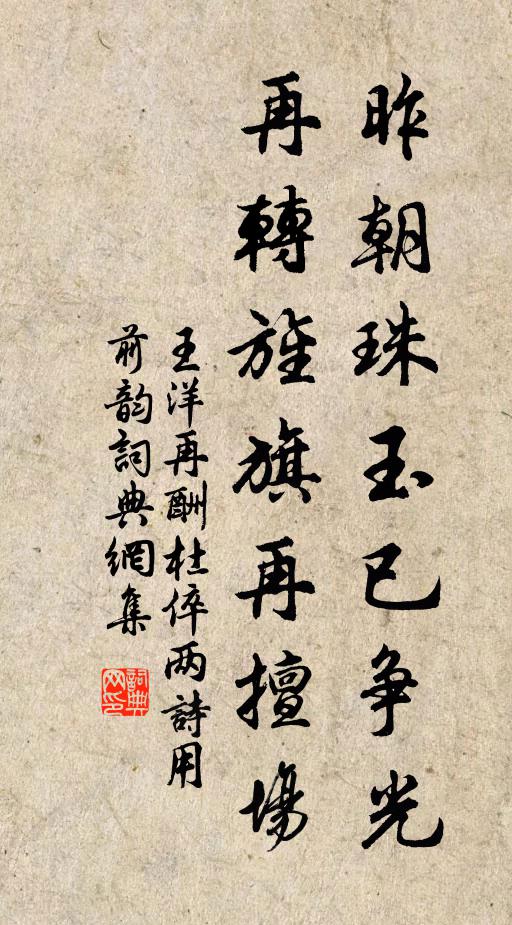 昨朝珠玉已争光
再轉旌旗再擅場
王洋再酬杜倅两詩用
前韵詞典網集
詞典网印